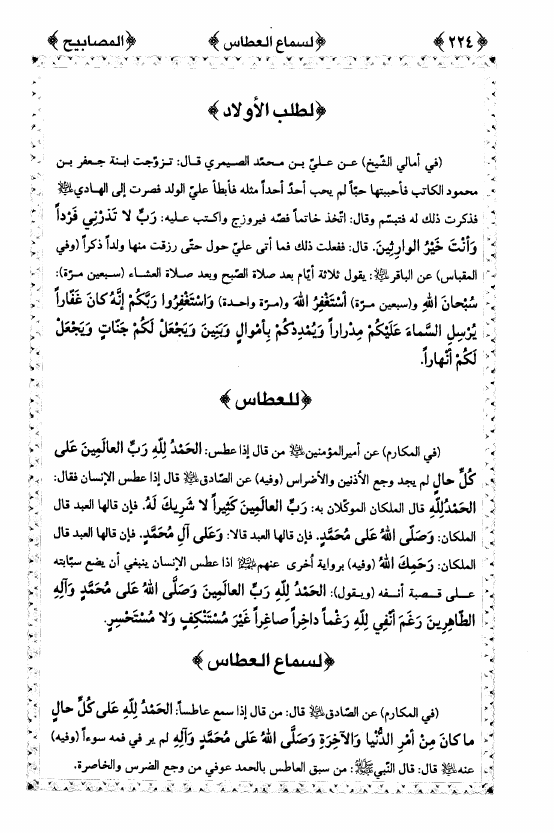 ﴿٢٢٤﴾ ﴿لسماع العطاس﴾ ﴿المصابيح﴾
﴿لطلب الأولاد﴾
(في أمالي الشّيخ) عن عليّ بن محمّد الصيمري قال: تزوّجت ابنة جعفر بن
محمود الكاتب فأحببتها حبّاً لم يحب أحدٌ أحداً مثله فأبطأ عليّ الولد فصرت إلى الهادي ﷺ
فذكرت ذلك له فتبسّم وقال: اتّخذ خاتماً فصّه فيروزج واكتب عليه: رَبِّ لا تَذَرْنِي فَرْداً
وَأَنْتَ خَيْرُ الوارِثِينَ. قال: ففعلت ذلك فما أتى عليّ حول حتّى رزقت منها ولداً ذكراً (وفي
المقباس) عن الباقر: يقول ثلاثة أيّام بعد صلاة الصّبح وبعد صلاة العشاء (سبعين مرّة):
سُبْحانَ اللهِ و(سبعين مرّة) أَسْتَغْفِرُ اللهَ و(مرة واحدة) وَاسْتَغْفِرُوا رَبَّكُمْ إِنَّهُ كانَ غَفَّاراً
يُرْسِلِ السَّماءَ عَلَيْكُمْ مِدْراراً وَيُمْدِدْكُمْ بِأَمْوالٍ وَبَنِينَ وَيَجْعَلْ لَكُمْ جَنّاتٍ وَيَجْعَلْ
لَكُمْ أَنْهاراً.
﴿للعطاس﴾
(في المكارم) عن أميرالمؤمنين من قال إذا عطس: الحَمْدُ لِلّهِ رَبِّ العالَمِينَ عَلى
كُلِّ حالٍ لم يجد وجع الأذنين والأضراس (وفيه) عن الصّادق قال إذا عطس الإنسان فقال:
الحَمْدُلِلّهِ قال الملكان الموكّلان به: رَبِّ العالَمِينَ كَثِيراً لا شَرِيكَ لَهُ. فإن قالها العبد قال
الملكان: وَصَلّى اللهُ عَلى مُحَمَّدٍ. فإن قالها العبد قالا: وَعَلى آلِ مُحَمَّدٍ. فإن قالها العبد قال
الملكان: رَحِمَكَ اللهُ (وفيه) برواية أُخرى عنهم اذا عطس الإنسان ينبغي أن يضع سبّابته
على قصبة أنفه (ويقول): الحَمْدُ لِلّهِ رَبِّ العالَمِينَ وَصَلَّى اللهُ عَلى مُحَمَّدٍ وَآلِهِ
الطّاهِرِينَ رَغَمَ أَنْفِي لِلّهِ رَغْماً داخِراً صاغِراً غَيْرَ مُسْتَنْكِفٍ وَلا مُسْتَحْسِرٍ.
﴿لسماع العطاس﴾
(في المكارم) عن الصّادق قال: من قال إذا سمع عاطساً: الحَمْدُ لِلّهِ عَلى كُلِّ حالٍ
ما كانَ مِنْ أَمْرِ الدُّنْيا وَالآخِرَةِ وَصَلَّى اللهُ عَلى مُحَمَّدٍ وَآلِهِ لم ير في فمه سوءاً (وفيه)
عنه قال: قال النّبي ﷺ: من سبق العاطس بالحمد عوفي من وجع الضرس والخاصرة.